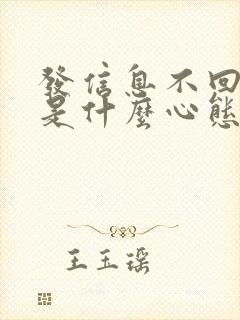 發信息不回
是什麼心態
王玉瑤